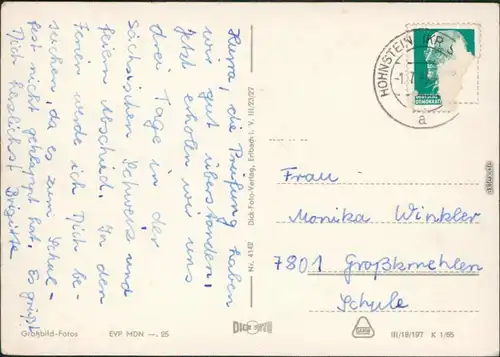 Hurra, die Prüfung haben
wir gut überstanden.
Jetzt erholen wir uns
drei Tage in der
Sächsischen Schweiz und
feiern Abschied. In den
Ferien werde ich Dich be-
suchen, da es zum Schul-
fest nicht geklappt hat. Es grüßt
Dich herzlichst Brigitte
Großbild-Fotos
EVP MDN —. 25
Nr. 4142 Dick-Foto-Verlag, Erlbach i. V. III/23/27
DICK
HOHNSTEIN (KR S
a
DEMOKRAT
Frau
Monika Winkler
7801 Großkmehlen
Schule
III/18/197 K 1/65